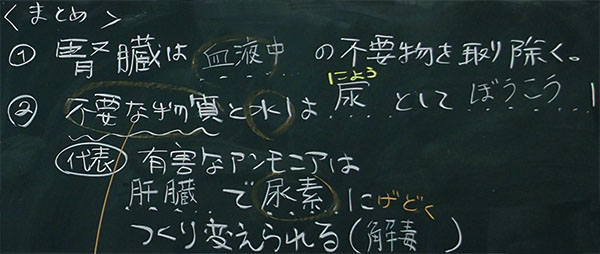 <まとめ>
① 腎臓は血液中の不要物を取り除く。
にょう
② 不要な物質と水は尿としてぼうこう
代表 有害なアンモニアは
肝臓で尿素に
げどく
つくり変えられる(解毒)